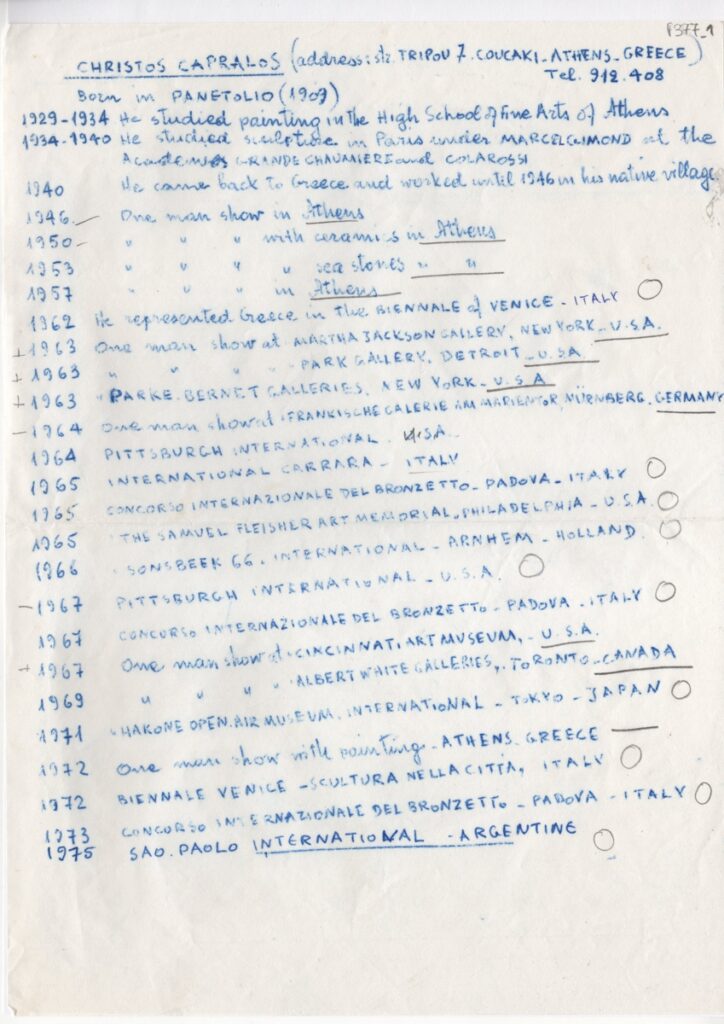 P377_1
CHRISTOS CAPRALOS (address: str. TRIPOU 7. COUCAKI - ATHENS - GREECE)
Tel. 912.408
Born in PANETOLIO (1909)
1929-1934 He studied painting in the High School of Fine Arts of Athens
1934-1940 He studied sculpture in Paris under MARCEL GIMOND at the
GRANDE CHAUMIERE and COLAROSSI
1940 He came back to Greece and worked until 1946 in his native village
1946. One man show in Athens
1950 " " " with ceramics in Athens
1953 " " " " sea stones " "
1957 " " " in Athens
1962 He represented Greece in the BIENNALE of VENICE - ITALY
+ 1963 One man show at MARTHA JACKSON GALLERY, NEW YORK - U.S.A.
+ 1963 " " " " PARK GALLERY, DETROIT - U.S.A
+ 1963 " PARKE. BERNET GALLERIES, NEW YORK - U.S.A
- 1964 One man show at: FRANKISCHE GALERIE AM MARIENTOR, NÜRNBERG, GERMANY
1964 PITTSBURGH INTERNATIONAL. U.S.A.
1965 INTERNATIONAL CARRARA - ITALY
1965 CONCORSO INTERNAZIONALE DEL BRONZETTO - PADOVA - ITALY
1965 " THE SAMUEL FLEISHER ART MEMORIAL, PHILADELPHIA - U.S.A.
1966 " SONSBEEK 66. INTERNATIONAL - ARNHEM - HOLLAND.
- 1967 PITTSBURGH INTERNATIONAL - U.S.A.
1967 CONCORSO INTERNAZIONALE DEL BRONZETTO - PADOVA - ITALY
+ 1967 One man show at: CINCINNATI ART MUSEUM, - U.S.A.
1969 " " " " ALBERT WHITE GALLERIES, TORONTO - CANADA
1971 " HAKONE OPEN. AIR MUSEUM, INTERNATIONAL - TOKYO - JAPAN
1972 One man show with painting - ATHENS - GREECE
1972 BIENNALE VENICE - SCULTURA NELLA CITTÀ, ITALY
1973 CONCORSO INTERNAZIONALE DEL BRONZETTO - PADOVA - ITALY
1975 SAO. PAOLO INTERNATIONAL - ARGENTINE